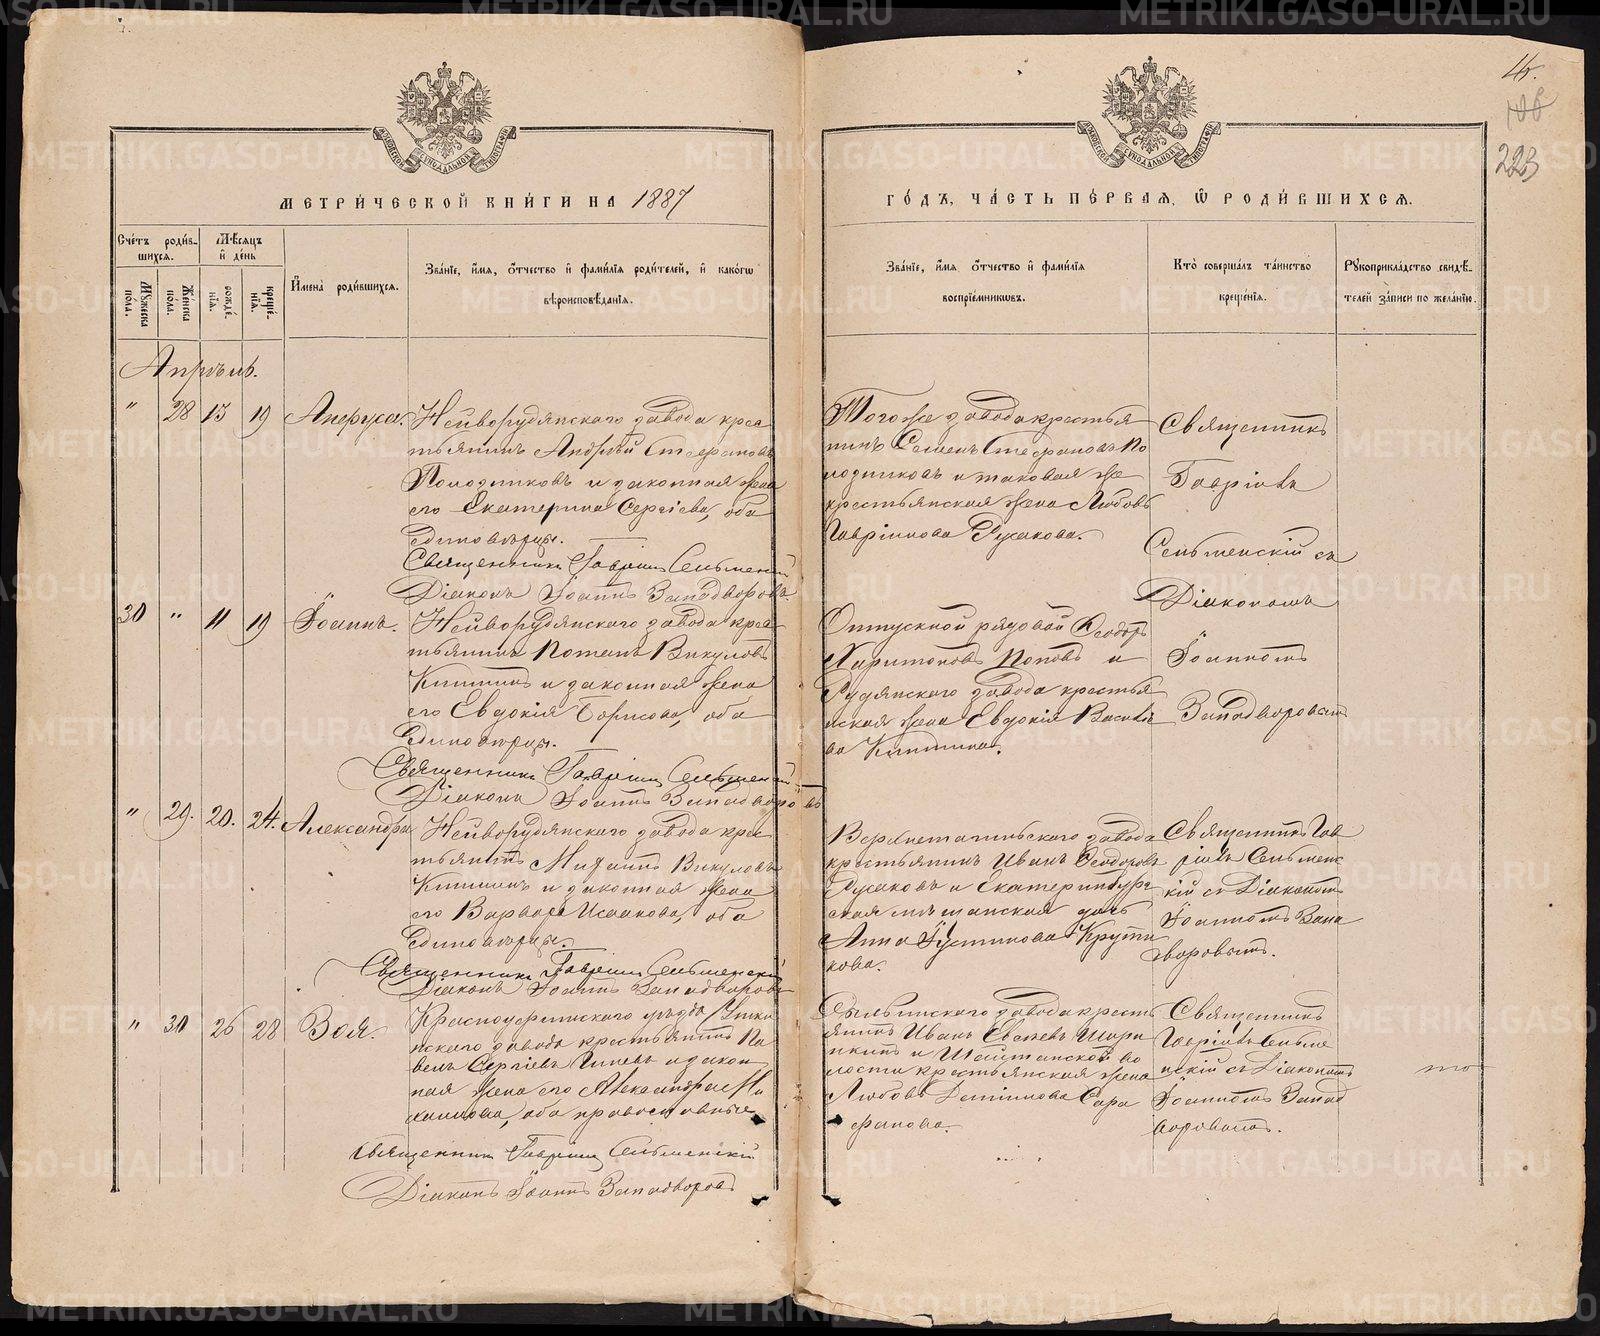 МЕТРИ́ЧЕСКОЙ КНИ́ГИ НА 1887
ГО́ДЪ, ЧА́СТЬ ПЕ́РВАЯ, Ѡ РОДИ́ВШИХСЯ.
223
Сче́тъ роди́в-
шихся.
Му́жеска по́ла.
Же́нска по́ла.
Мѣ́сяцъ и де́нь
рожде́нїя.
креще́нїя.
И́мена роди́вшихся.
Зва́нїе, и́мя, о́тчество и фами́лїя роди́телей, и како́гѡ
вѣроисповѣ́данїя.
Зва́нїе, и́мя, о́тчество и фами́лїя
воспрїе́мниковъ.
Кто̀ соверша́лъ та́инство
креще́нїя.
Рꙋкоприкла́дство свидѣ́-
телей за́писи по жела́нїю.
Апрѣль.
" 28 13 19 Анфуса.
Нейворудянского завода крес
тьянинъ Андрей Стефановъ
Холодниковъ и законная жена
его Екатерина Сергіева, оба
единовѣрцы.
Священникъ Гавріилъ Сельменскій
Діаконъ Іоаннъ Западворовъ
Тогоже завода крестья
нинъ Семенъ Стефановъ Хо
лодниковъ и таковая же
крестьянская жена Любовь
Гавріилова Русакова.
Священникъ
Гавріилъ
Сельменскій съ
Діакономъ
Іоанномъ
Западворовымъ
30 " 11 19 Іоаннъ.
Нейворудянского завода крес
тьянинъ Потапъ Викуловъ
Кишинъ и законная жена
его Евдокія Борисова, оба
единовѣрцы.
Священникъ Гавріилъ Сельменскій
Діаконъ Іоаннъ Западворовъ
Отпускной рядовой Ѳеодоръ
Харитоновъ Поповъ и
Рудянского завода крестья
нская жена Евдокія Василье
ва Кишина.
" 29. 20. 24. Александра
Нейворудянского завода крес
тьянинъ Михаилъ Викуловъ
Кишинъ и законная жена
его Варвара Исаакова, оба
единовѣрцы.
Священникъ Гавріилъ Сельменскій
Діаконъ Іоаннъ Западворовъ
Верхнетагильского завода
крестьянинъ Иванъ Ѳеодоровъ
Русаковъ и Екатеринбург
ская мѣщанская дочь
Анна Іустинова Крути
кова.
Священникъ Гав
ріилъ Сельменс
кій съ Діакономъ
Іоанномъ Запа
дворовымъ.
" 30 26 28 Зоя.
Красноуфимского уѣзда
завода крестьянинъ Па
велъ Сергіевъ и закон
ная жена его Александра Ми
хаилова, оба православные
Священникъ Гавріилъ Сельменскій
Діаконъ Іоаннъ Западворовъ
завода кресть
янинъ Иванъ
и Шайтанской во
лости крестьянская жена
Любовь Сара
фанова.
Священникъ
Гавріилъ Сельме
нскій съ Діакономъ
Іоанномъ Запад
воровымъ.